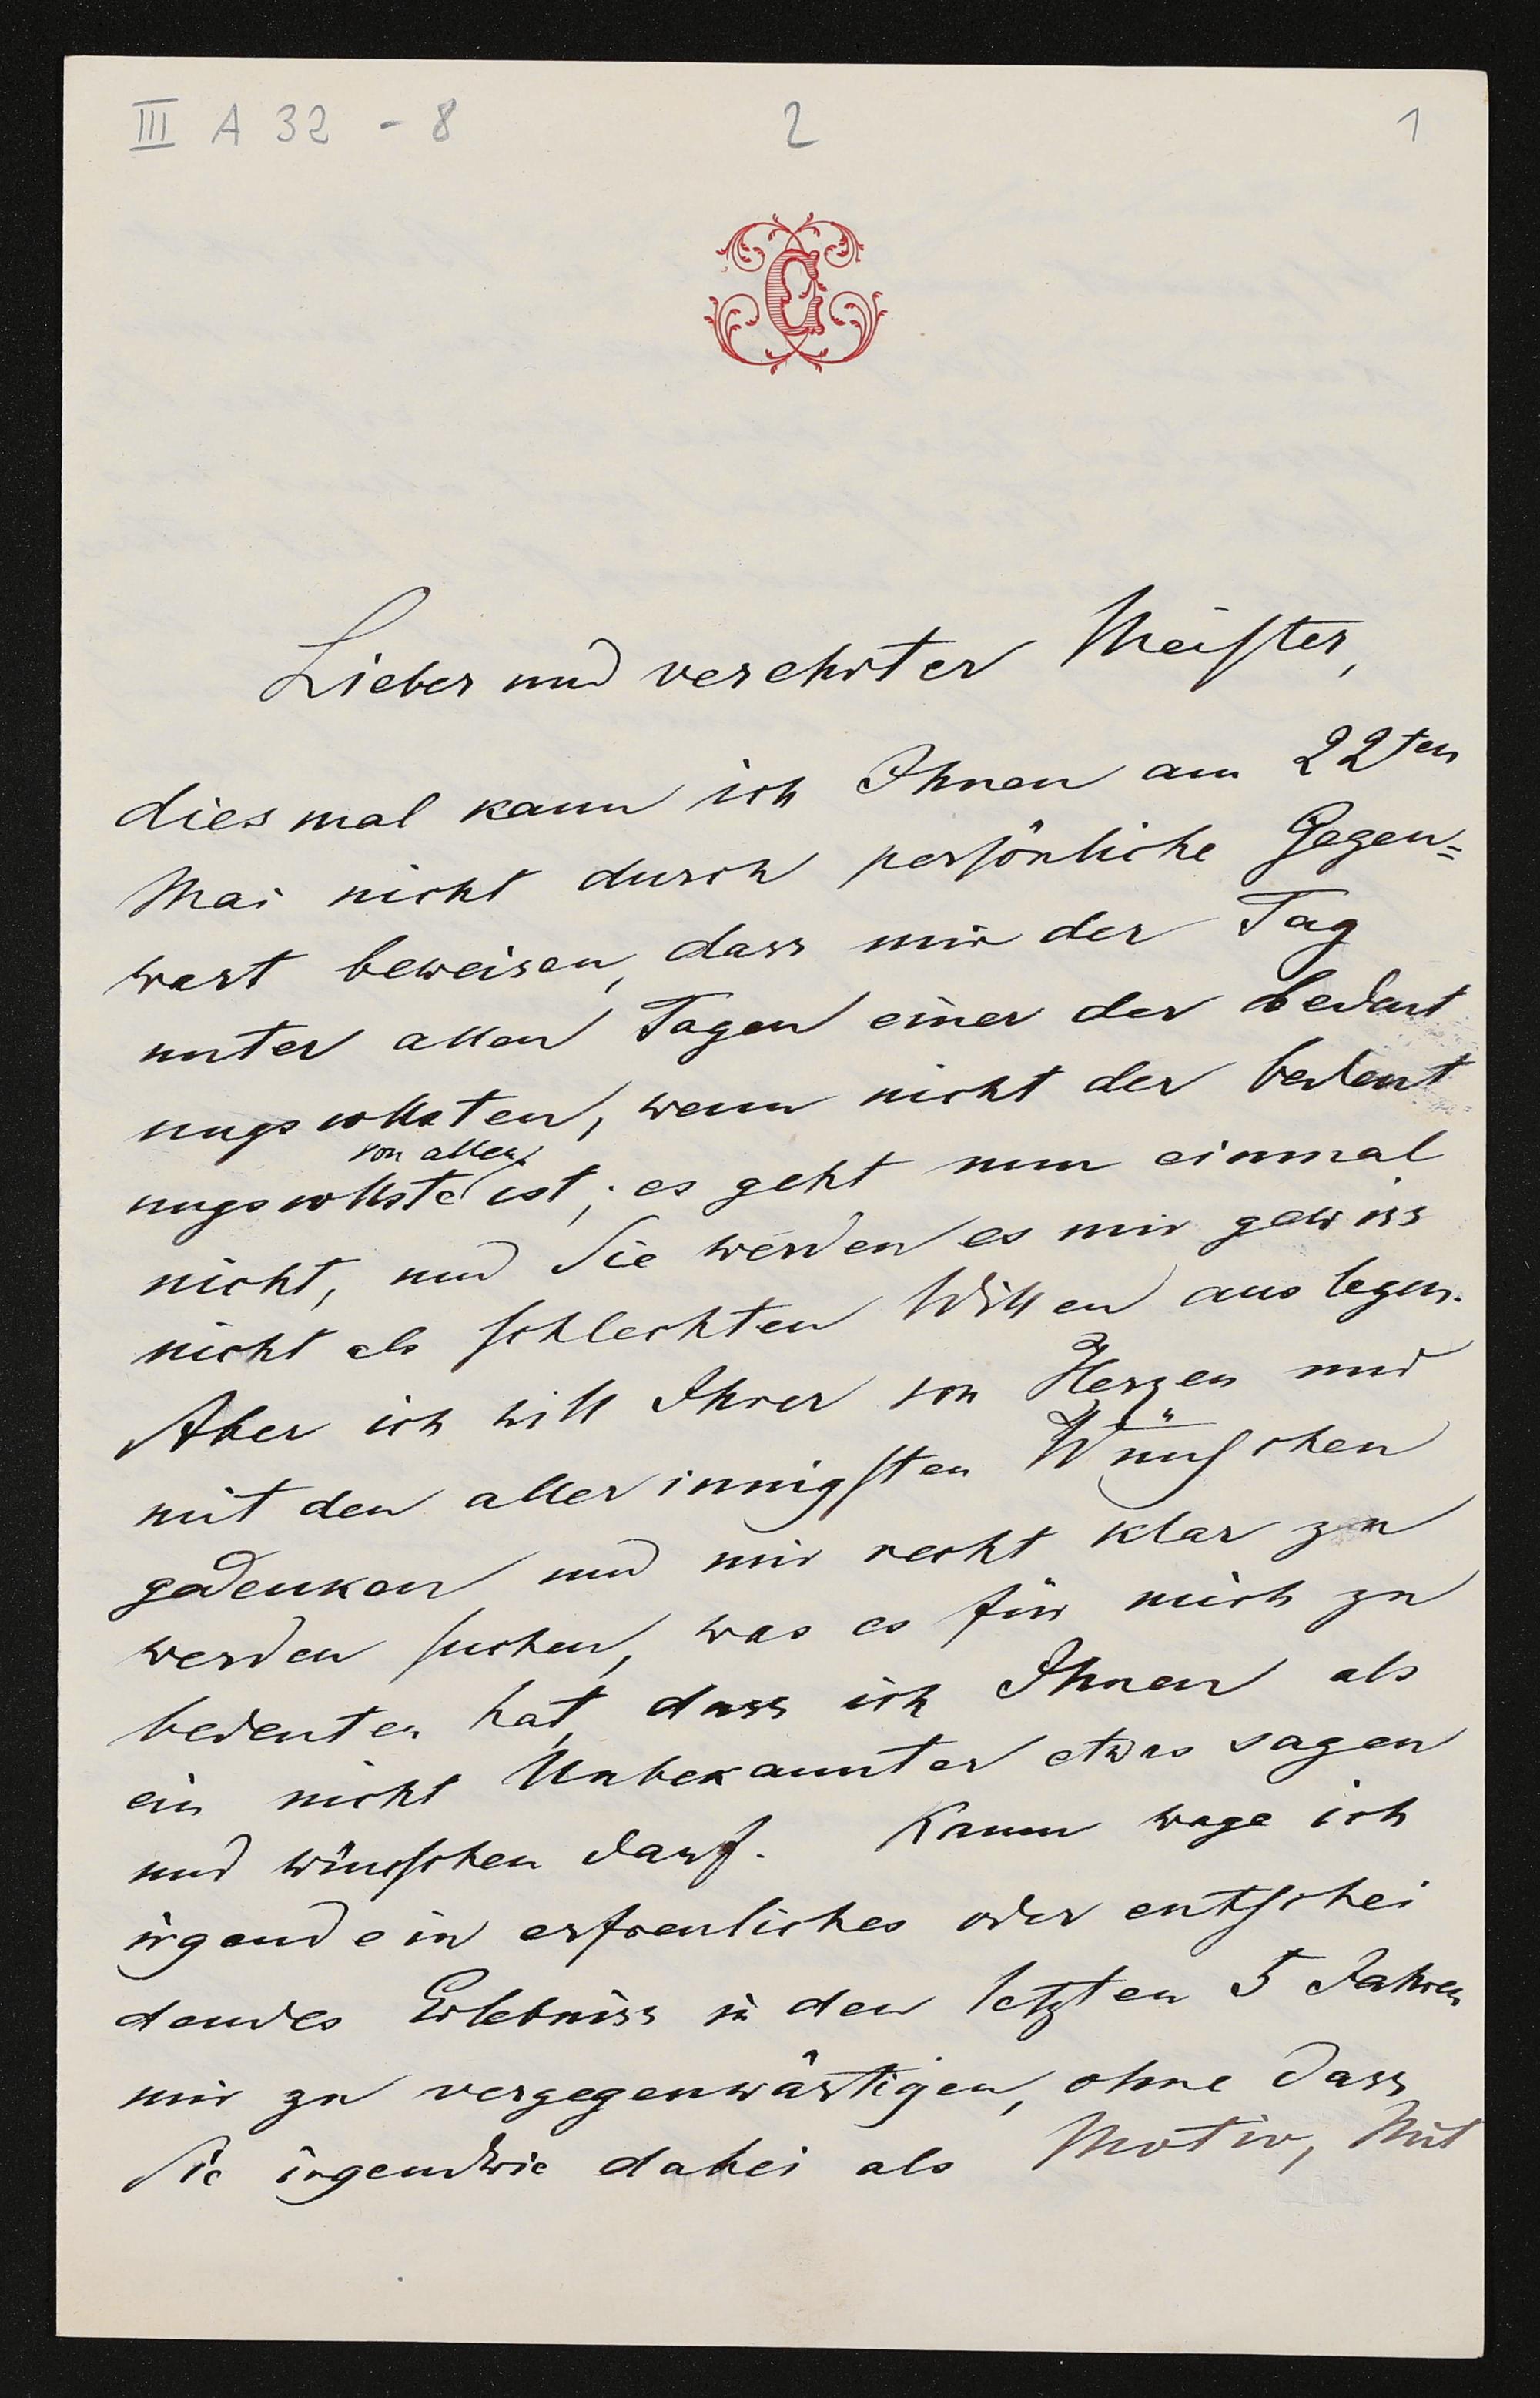 III A 32 - 8 2 1
G
Lieber und verehrter Meister,
diesmal kann ich Ihnen am 22ten
Mai nicht durch persönliche Gegen=
wart beweisen, dass mir der Tag
unter allen Tagen einer der bedeut
ungsvollsten, wenn nicht der bedeut
von allen
ungsvollste ist; es geht nun einmal
nicht, und Sie werden es mir gewiss
nicht als schlechten Willen auslegen.
Aber ich will Ihrer von Herzen und
mit den allerinnigsten Wünschen
gedenken und mir recht klar zu
werden suchen, was es für mich zu
bedeuten hat, dass ich Ihnen als
ein nicht Unbekannter etwas sagen
und wünschen darf. Kaum wage ich
irgend ein erfreuliches oder entschei
dendes Erlebniss in den letzten 5 Jahren
mir zu vergegenwärtigen, ohne dass
Sie irgendwie dabei als Motiv, Mit